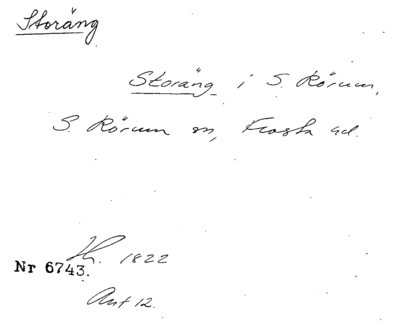 Storäng
Storäng i S. Rörum,
S. Rörum sn, Frosta hd.
1822
Nr 6743.
Ant 12.